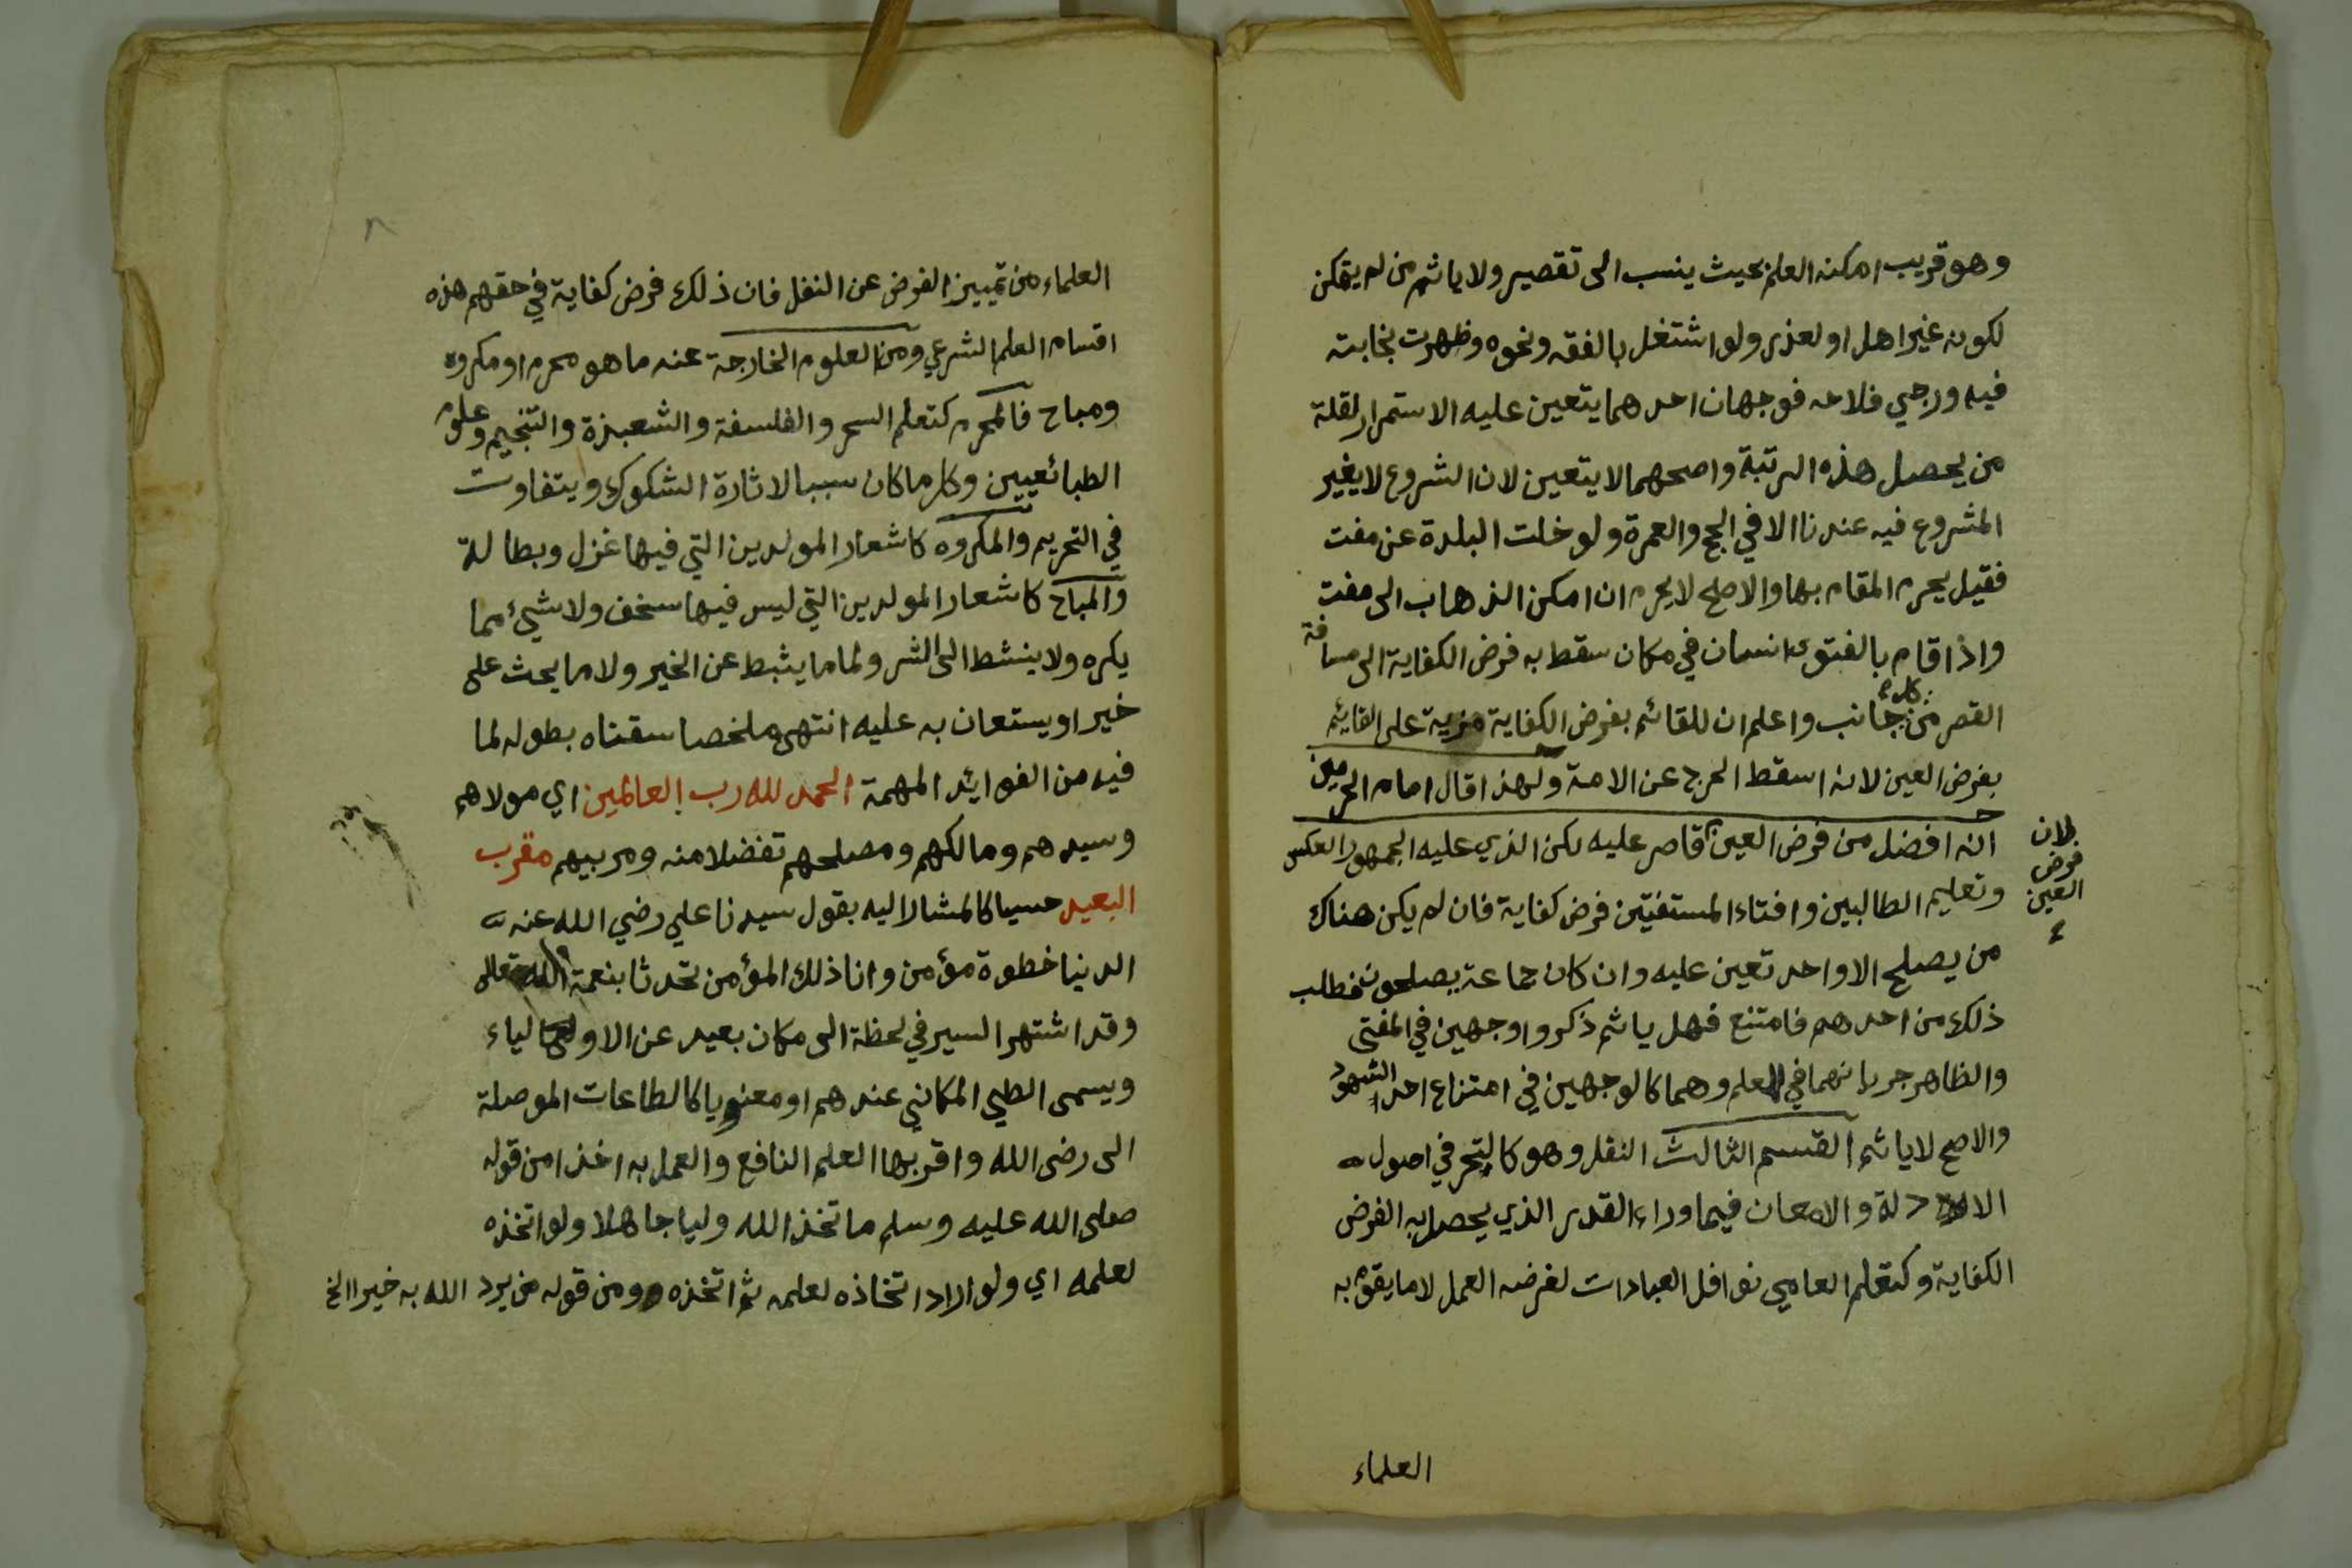 وهو قريب امكنه العلم بحيث ينسب الى تقصير ولا ياثم من لم يتمكن
لكونه غير اهل او لعذر ولو اشتغل بالفقه ونحوه وظهرت نجابته
فيه ورجي فلاحه فوجهان احدهما يتعين عليه الاستمرار لقلة
من يحصل هذه الرتبة واصحهما لا يتعين لان الشروع لا يغير
المشروع فيه عندنا الا في الحج والعمرة ولو خلت البلدة عن مفت
فقيل يحرم المقام بها والاصح لا يحرم ان امكن الذهاب الى مفت
واذا قام بالفتوى انسان في مكان سقط به فرض الكفاية الى مسافة
القصر من كل جانب واعلم ان للقائم بفرض الكفاية مزية على القائم
بفرض العين لانه اسقط الحرج عن الامة ولهذا قال امام الحرمين
انه افضل من فرض العين قاصر عليه لكن الذي عليه الجمهور العكس
لان
فرض
العين
وتعليم الطالبين وافتاء المستفتين فرض كفاية فان لم يكن هناك
من يصلح الا واحد تعين عليه وان كان جماعة يصلحون فطلب
ذلك من احدهم فامتنع فهل ياثم ذكروا وجهين في المفتى
والظاهر جريانهما في المعلم وهما كالوجهين في امتناع احد الشهود
والاصح لا ياثم القسم الثالث النفل وهو كالتبحر في اصول
الادلة والامعان فيما وراء القدر الذي يحصل به الفرض
الكفاية وكتعلم العامي نوافل العبادات لغرضه العمل لا ما يقوم به
العلماء
العلماء من تمييز الفرض عن النفل فان ذلك فرض كفاية في حقهم هذه
اقسام العلم الشرعي ومن العلوم الخارجة عنه ما هو محرم او مكروه
ومباح فالمحرم كتعلم السحر والفلسفة والشعبذة والتنجيم وعلوم
الطبائعيين وكل ما كان سببا لاثارة الشكوك ويتفاوت
في التحريم والمكروه كاشعار المولدين التي فيها غزل وبطالة
والمباح كاشعار المولدين التي ليس فيها سخف ولا شيئ مما
يكره ولا ينشط الى الشر ولا ما يثبط عن الخير ولا ما يحث على
خير او يستعان به عليه انتهى ملخصا سقناه بطوله لما
فيه من الفوايد المهمة الحمد لله رب العالمين اي مولاهم
وسيدهم ومالكهم ومصلحهم تفضلا منه ومربيهم مقرب
البعيد حسيا كالمشار اليه بقول سيدنا علي رضي الله عنه
الدنيا خطوة مؤمن وانا ذلك المؤمن تحدثا بنعمة الله تعالى
وقد اشتهر السير في لحظة الى مكان بعيد عن الاولياء
ويسمى الطي المكاني عندهم او معنويا كالطاعات الموصلة
الى رضى الله واقربها العلم النافع والعمل به اخذا من قوله
صلى الله عليه وسلم ما تخذ الله وليا جاهلا ولو اتخذه
لعلمه اي ولو اراد اتخاذه لعلمه ثم اتخذه ومن قوله من يرد الله به خيرا الخ